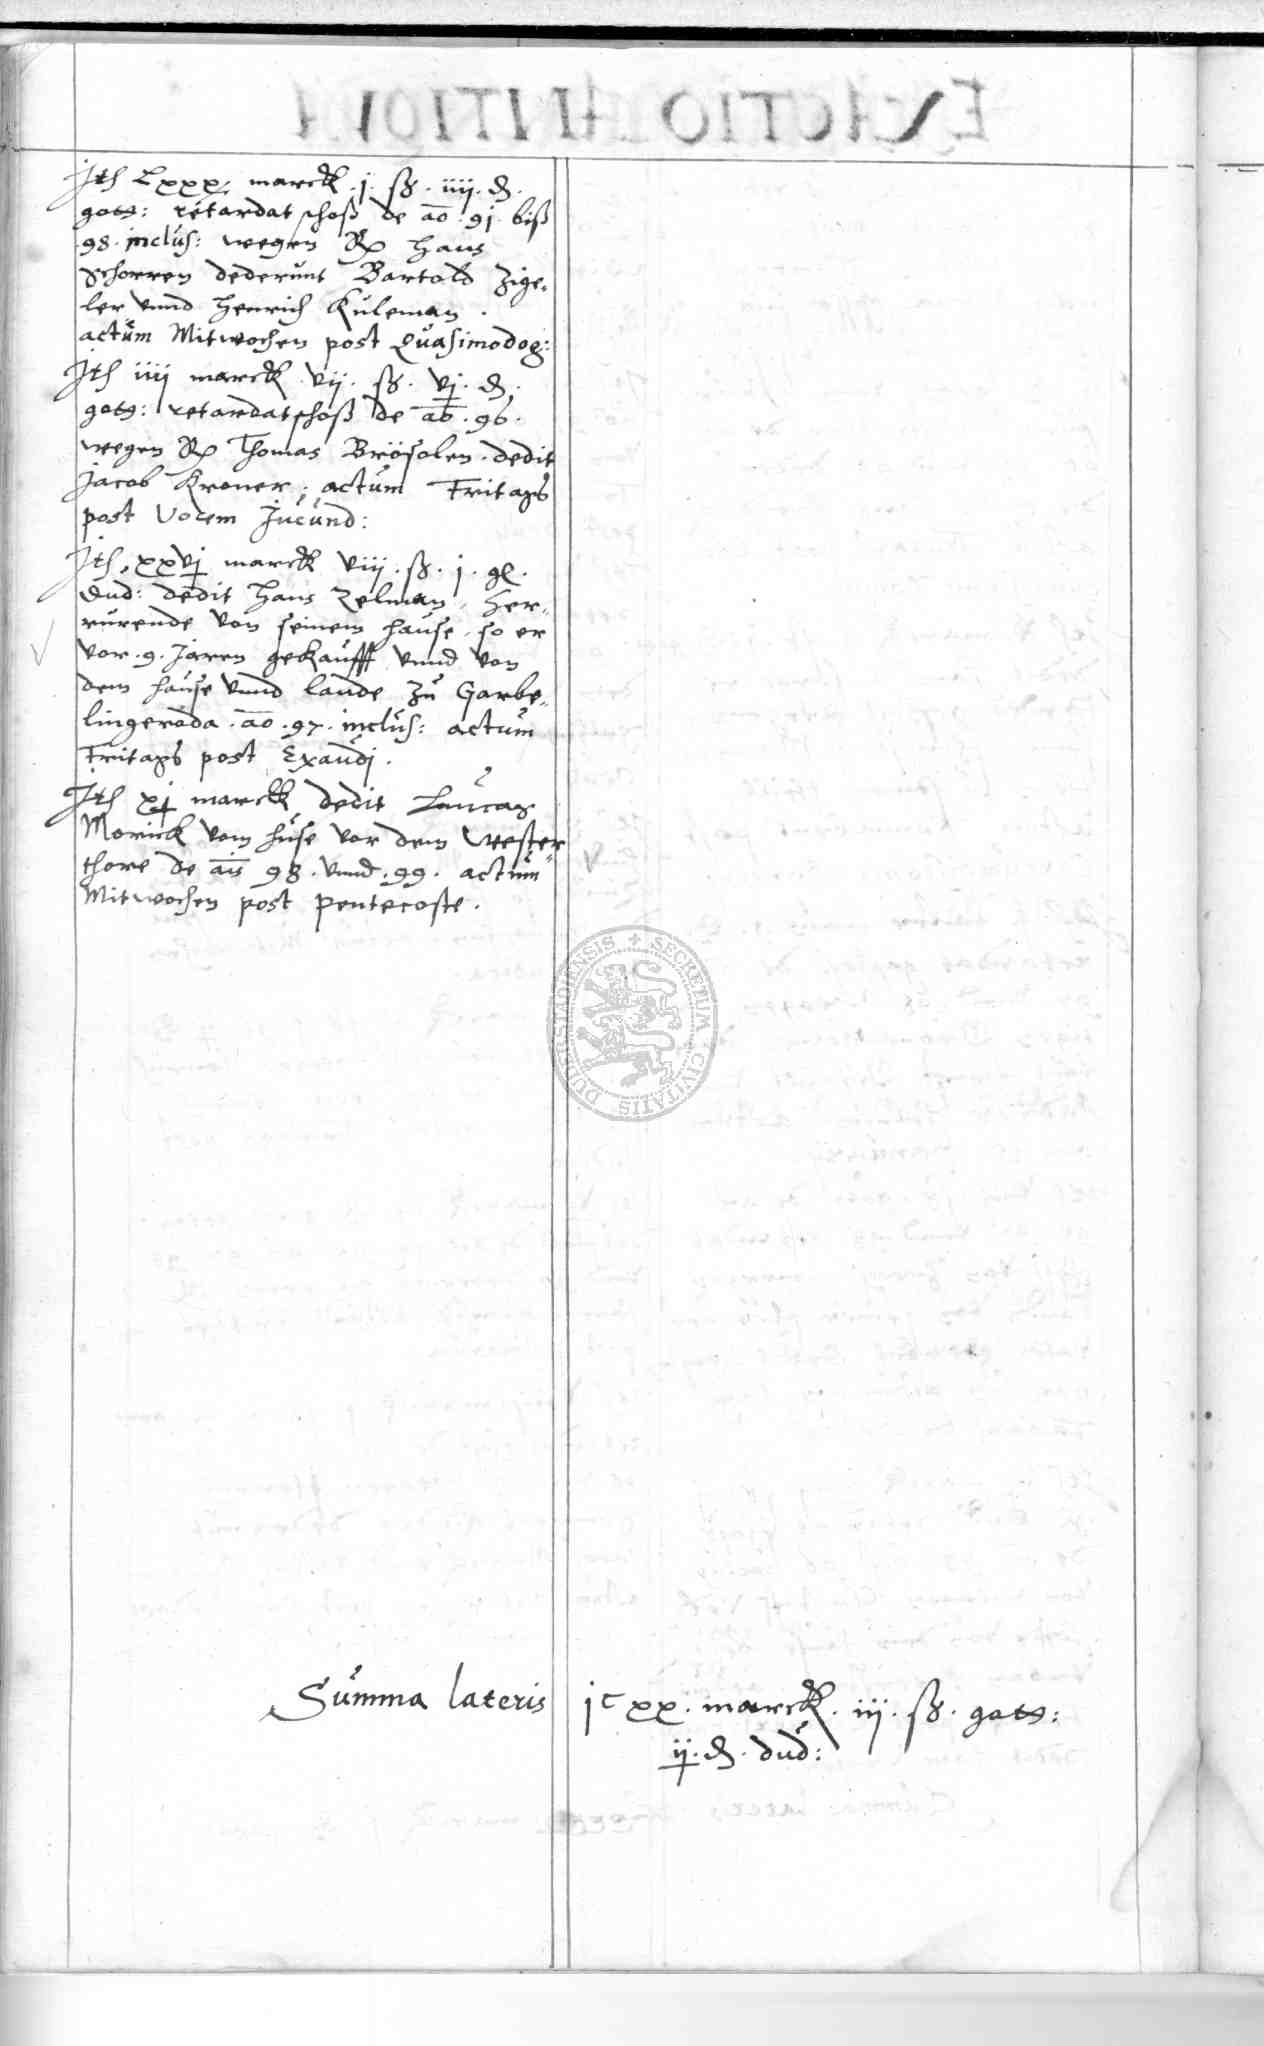 Ith Lxxx marck . j . ß . iiij . ₰ .
gots : retardat schoß de ao . 91 . biß
98 . inclus : wegen Rp Hans
Schorren dederunt Bartold Zige-
ler vnnd Henrich Kuleman .
actum Mitwochen post Quasimodog :
Ith iiij marck . vij . ß . vj . ₰ .
gots : retardatschoß de ao . 96 .
wegen Rp Thomas Brösolen . dedit
Jacob Kroner ; actum Fritags
post Vocem Jucund :
Ith . xxvj marck viij . ß . j . gl .
dud : dedit Hans Zelman , her-
rurende von seinem hause , so er
vor . 9 . Jaren gekaufft vnnd von
dem hause vnnd lande zu Garbe-
lingeroda . ao . 97 . inclus : actum
Fritags post Exaudj .
Ith xj marck dedit Laucas
Morick vom huse vor dem Wester-
thore de ais 98 . vnnd . 99 . actum
Mitwochen post Pentecoste .
SECRETUM CIVITATIS DUDERSTADIENSIS
Summa lateris jc xx . marck . iij . ß . gots :
ij . ₰ . dud :